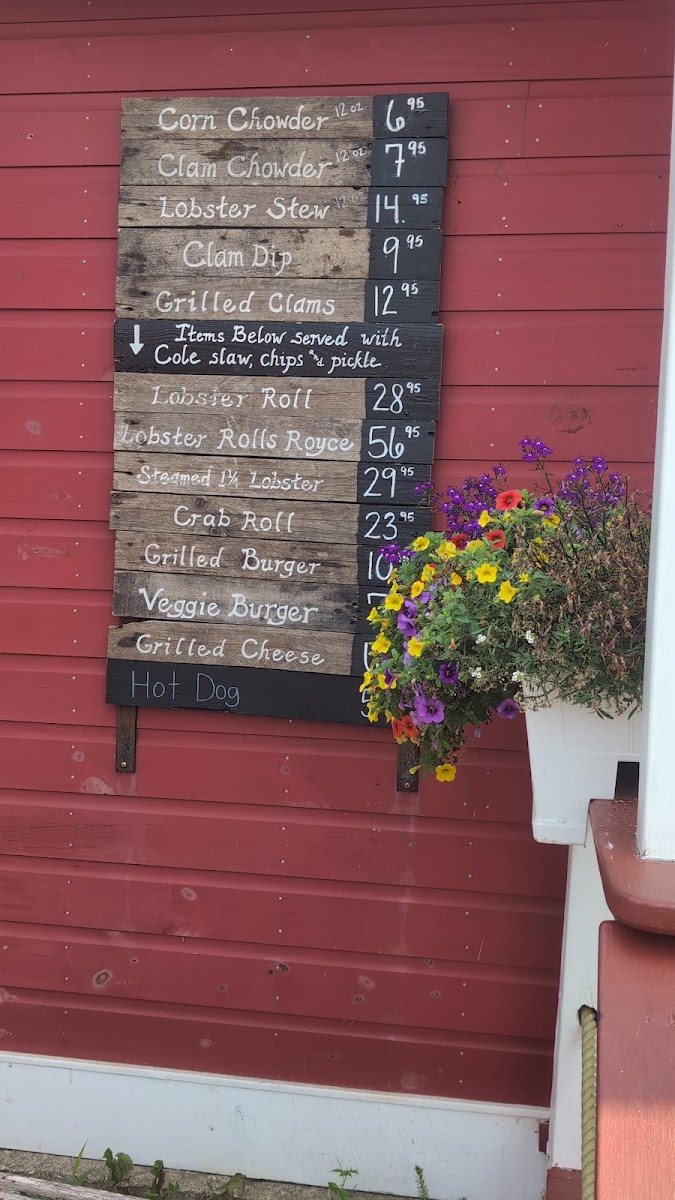 Corn Chowder 12 oz 6 95
Clam Chowder 12 oz 7 95
Lobster Stew 12 oz 14. 95
Clam Dip 9 95
Grilled Clams 12 95
↓ Items Below served with
Cole slaw, chips and pickle
Lobster Roll 28 95
Lobster Rolls Royce 56 95
Steamed 1¼ Lobster 29 95
Crab Roll 23 95
Grilled Burger 10
Veggie Burger
Grilled Cheese
Hot Dog